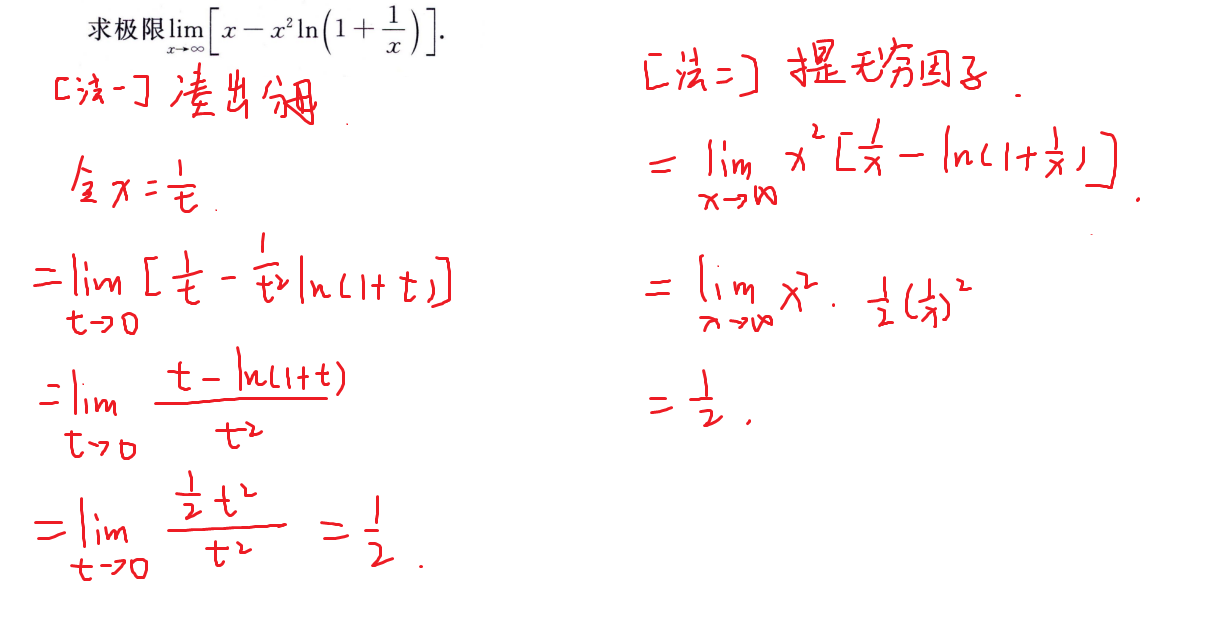 求极限lim_{x→∞}[x − x²ln(1 + 1/x)].
[法一] 凑出分母.
令 x = 1/t.
= lim_{t→0} [1/t − 1/t² ln(1+t)]
= lim_{t→0} (t − ln(1+t))/t²
= lim_{t→0} (1/2 t²)/t² = 1/2.
[法二] 提无穷因子.
= lim_{x→∞} x² [1/x − ln(1+1/x)].
= lim_{x→∞} x² · 1/2 (1/x)²
= 1/2.